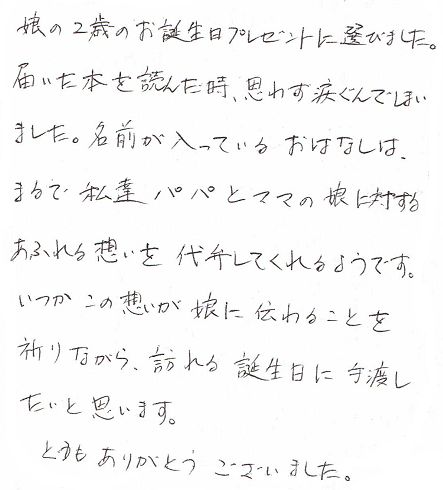 娘の2歳のお誕生日プレゼントに選びました。
届いた本を読んだ時、思わず涙ぐんでしまい
ました。名前が入っているおはなしは、
まるで私達パパとママの娘に対する
あふれる想いを代弁してくれるようです。
いつかこの想いが娘に伝わることを
祈りながら、訪れる誕生日に手渡し
たいと思います。
とてもありがとうございました。